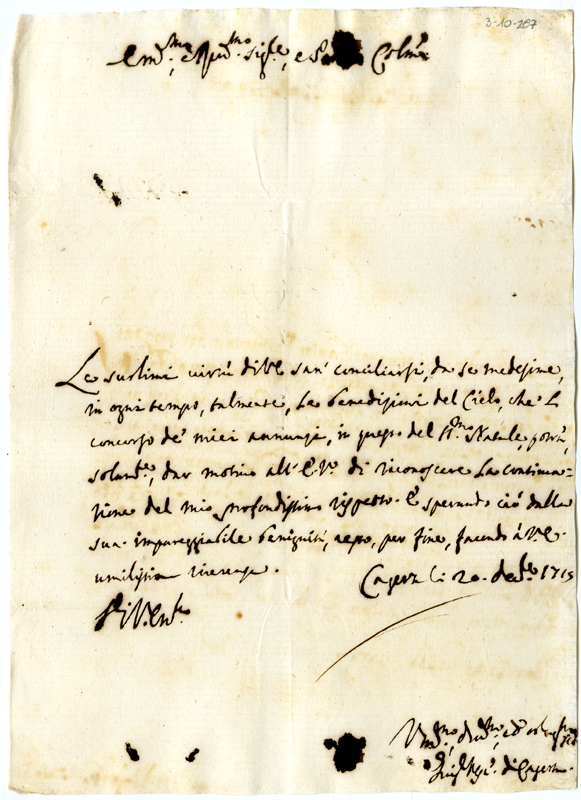 3-10-287
Em.mo e R.mo Sig.re, e P. Colmo
Le sublimi virtù di V.E. san' conciliarsi, da se medesime,
in ogni tempo, talmente, le benedizioni del Cielo, che 'l
concorso de' miei annunzi, in questo del SS.mo Natale, potrà,
solam.te, dar motivo all' E.V. di riconoscere la continua=
zione del mio profondissimo rispetto. E sperando ciò dalla
sua impareggiabile benignità, resto, per fine, facendo à V.E.
umilissima riverenza.
Caserta li 20. Dec.bre 1715
Di V. Em.za
Um.mo
di Caserta